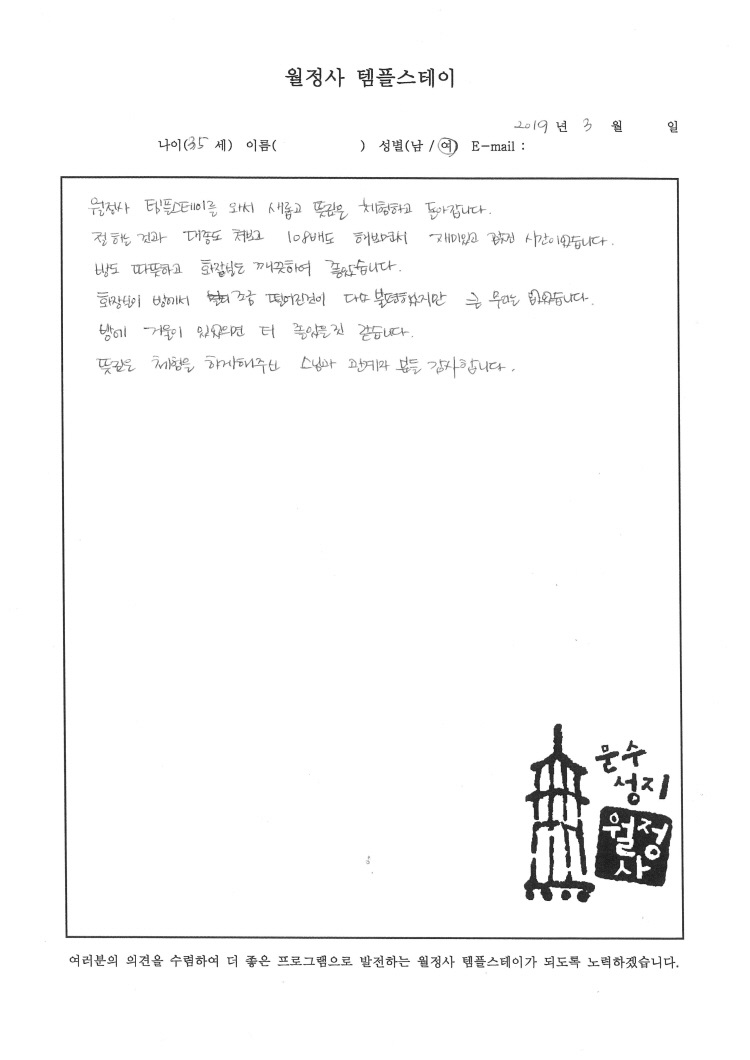 월정사 템플스테이
2019 년 3 월 일
나이(35 세) 이름( ) 성별(남 / 여) E-mail :
월정사 템플스테이를 와서 새롭고 뜻깊은 체험하고 돌아갑니다.
절하는 건과 대종도 쳐보고 108배도 해보면서 재미있고 값진 시간이었습니다.
방도 따뜻하고 화장실도 깨끗하여 좋았습니다.
화장실이 방에서 조금 떨어진것이 다소 불편했지만 큰 무리는 없었습니다.
방에 거울이 있었으면 더 좋았을것 같습니다.
뜻깊은 체험을 하게해주신 스님과 관계자 분들 감사합니다.
문수
성지
월정
사
여러분의 의견을 수렴하여 더 좋은 프로그램으로 발전하는 월정사 템플스테이가 되도록 노력하겠습니다.